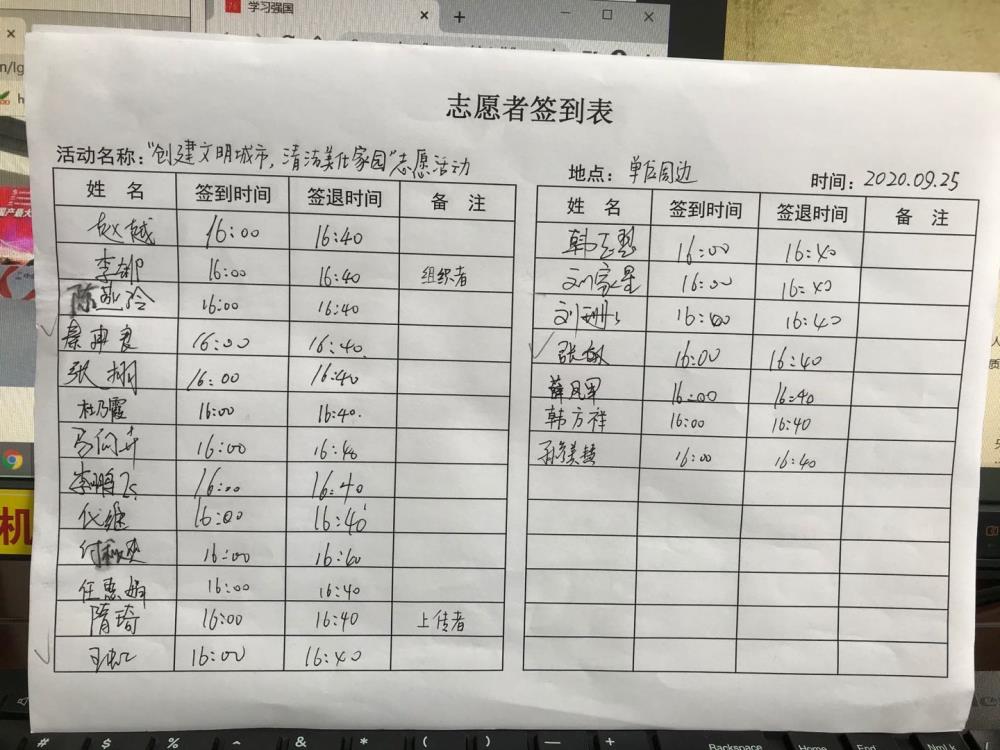 学习强国
志愿者签到表
活动名称：“创建文明城市，清洁美化家园”志愿活动
地点：单位周边
时间：2020.09.25
姓 名 签到时间 签退时间 备 注
赵越 16:00 16:40
李 16:00 16:40 组织者
陈 16:00 16:40
秦 16:00 16:40
张栩 16:00 16:40
杜乃霞 16:00 16:40
马 16:00 16:40
李鹏飞 16:00 16:40
代继 16:00 16:40
付 16:00 16:40
任惠娟 16:00 16:40
隋琦 16:00 16:40 上传者
王 16:00 16:40
姓 名 签到时间 签退时间 备 注
韩玉慧 16:00 16:40
刘家星 16:00 16:40
刘珊 16:00 16:40
张 16:00 16:40
薛凤军 16:00 16:40
韩方祥 16:00 16:40
孙美慧 16:00 16:40
机
# $ % & * ( ) — +
Backspace Home End NmLk